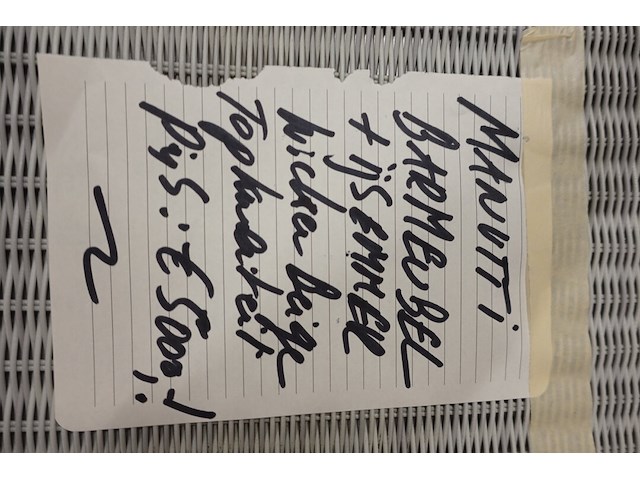 MANUTTI
BARMEUBEL
+ IJSEMMER
wicker beige
Topkwaliteit
Prijs: € 5000,-